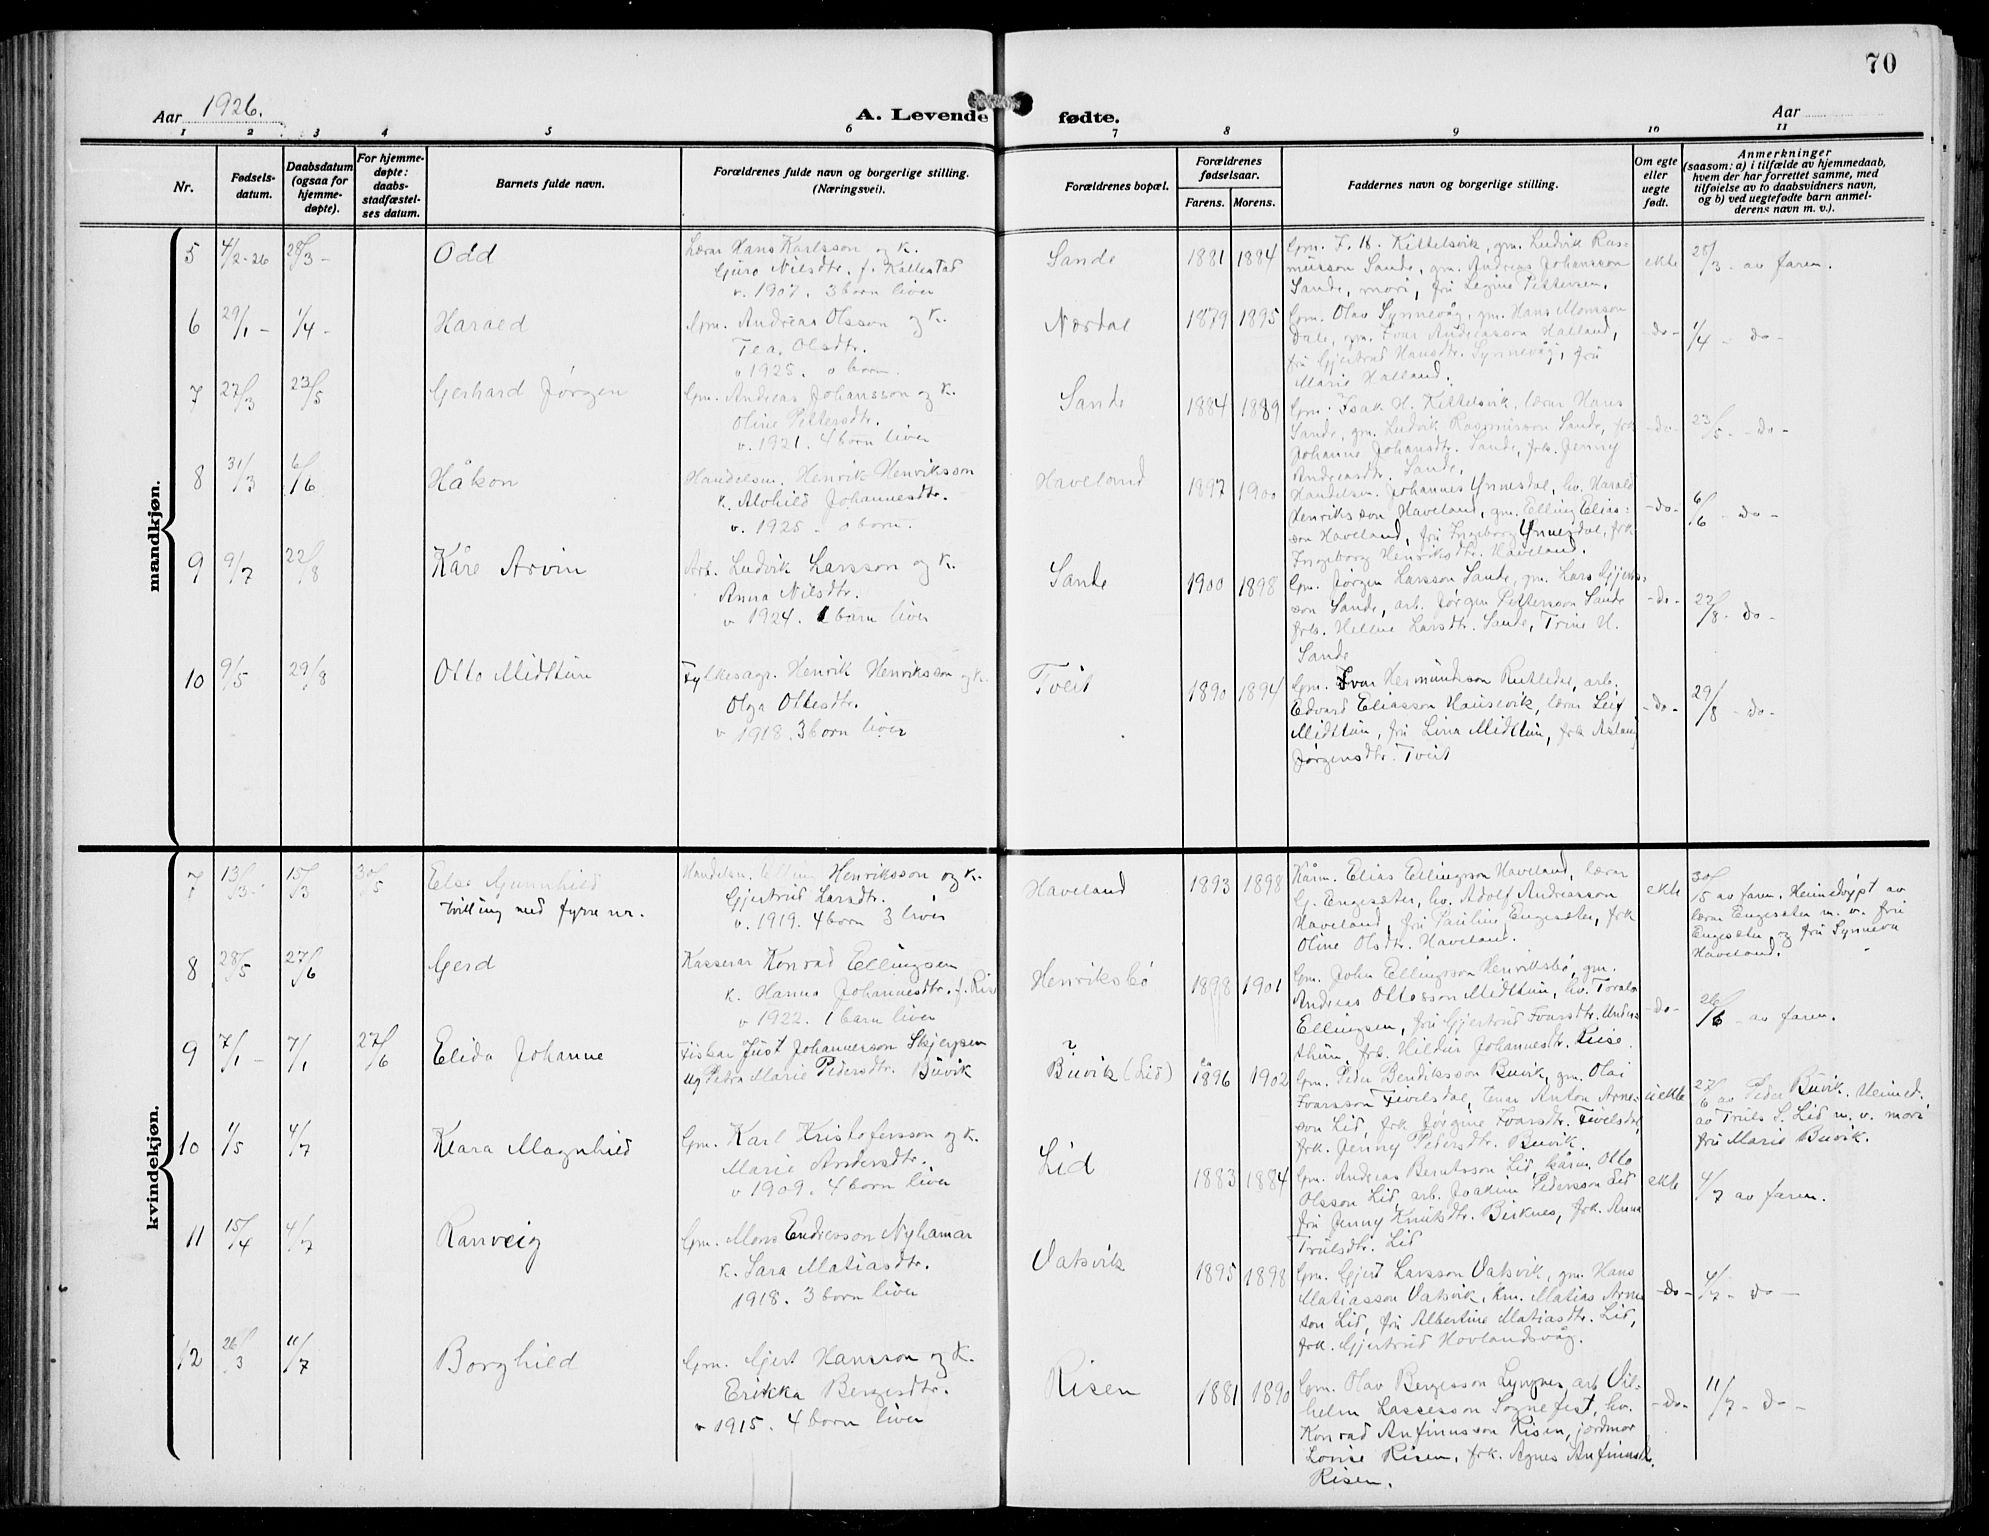 70
Aar 1926.
A. Levende fødte.
Aar
1 2 3 4 5 6 7 8 9 10 11
Nr.
Fødsels-
datum.
Daabsdatum
(ogsaa for
hjemme-
døpte).
For hjemme-
døpte:
daabs-
stadfæstel-
ses datum.
Barnets fulde navn.
Forældrenes fulde navn og borgerlige stilling.
(Næringsvei).
Forældrenes bopæl.
Forældrenes
fødselsaar.
Farens. Morens.
Faddernes navn og borgerlige stilling.
Om egte
eller
uegte
født.
Anmerkninger
(saasom: a) i tilfælde av hjemmedaab,
hvem der har forrettet samme, med
tilføielse av to daabsvidners navn,
og b) ved uegtefødte barn anmel-
derens navn m. v.).
mandkjøn.
5 4/2-26 28/3 - Odd
Lærar Hans Karlsson og k.
Guro Nilsdtr. f. Kallestad
v. 1907. 3 born liver
Sande 1881 1884
Gm. I. H. Kittelsvik, gm. Ludvik Ras=
musson Sande, gm. Andreas Johansson
Sande, mori, fru Regine Pettersen.
ekte 28/3 - av faren.
6 29/1 - 1/4 - Harald
Gm. Andreas Olsson og k.
Tea Olsdtr.
v 1925. 0 born.
Nordal 1879 1895
Gm. Olav Synnevåg, gm. Hans Monsson
Dale, gm. Ivar Andreasson Halland,
fru Gjertrud Hansdtr. Synnevåg, fru
Marie Halland.
-do- 1/4 - do -
7 27/3 23/5 Gerhard Jørgen
Gm. Andreas Johansson og k.
Oline Pettersdtr.
v. 1921. 4 born liver
Sande 1884 1889
Gm. Isak H. Kittelsvik, lærar Hans
Sande, gm. Ludvik Rasmusson Sande, frk
Johanne Johansdtr. Sande, frk. Jenny
Andreasdtr. Sande.
-do- 23/5 - do -
8 31/3 6/6 Håkon
Handelsm. Henrik Henriksson
k. Alvhild Johannesdtr.
v. 1925. 0 born.
Haveland 1897 1900
Handelsm. Johannes Ynnesdal, hv. Harald
Henriksson Haveland, gm. Elling Elias=
son Haveland, fru Ingeborg Ynnesdal, frk
Ingeborg Henriksdtr. Haveland.
-do- 6/6 - do -
9 9/7 22/8 Kåre Arvin
Arb. Ludvik Larsson og k.
Anna Nilsdtr.
v 1924. 1 barn liver
Sande 1900 1898
Gm. Jørgen Larsson Sande, gm. Lars
son Sande, arb. Jørgen Pettersson Sande
frk. Helene Larsdtr. Sande, Trine H.
Sande
-do- 22/8 - do -
10 9/5 29/8 Otto Midttun
Fylkesagr. Henrik Henriksson og k.
Olga Ottesdtr.
v 1918. 3 born liver
Tveit 1890 1894
Gm. Ivar Hermundson Rutledal, arb.
Edvard Eliasson Hauslvik, lærar Leif
Midttun, fru Lina Midttun, frk Aslaug
Jørgensdtr. Tveit
-do- 29/8 - do -
kvindekjøn.
7 13/3 15/3 30/5 Else Gunnhild
tvilling med fyrre nr.
Handelsm. Elling Henriksson og k.
Gjertrud Larsdtr.
v. 1919. 4 born 3 liver
Haveland 1893 1898
Kårm. Elias Ellingson Haveland, lærar
G. Engesæter, hv. Adolf Andreasson
Haveland, fru Pauline Engesæter, frk
Oline Olsdtr. Haveland.
ekte 30/5 av faren. Heimedøypt av
lærar Engesæter m. v. fru
Engesæter og fru Synneva
Haveland.
8 28/5 27/6 Gerd
Kasserar Konrad Ellingsen
k. Hanna Johannesdtr. f. Rise
v 1922. 1 barn liver
Henriksbø 1898 1901
Gm. John Ellingsson Henriksbø, gm.
Andreas Ottesson Midttun, hv. Toralv
Ellingsen, fru Gjertrud Ivarsdtr. Under=
thun, frk. Hildur Johannesdtr. Riise.
-do- 26/6 - av faren.
9 7/1 - 7/1 27/6 Elida Johanne
Fiskar Just Johannesson Skjerpen
Ug Petra Marie Pedersdtr. Buvik
? Buvik (Lid) 1896 1902
Gm. Peder Bendiksson Buvik, gm. Olai
Ivarsson Tivilsdal, Anton Arnes=
son Lid, frk Jørgine Ivarsdtr. Tivilsdal,
frk. Jenny Pedersdtr. Buvik.
uekte 27/6 av Peder Buvik. Heimed.
av Truls S. Lid m. v. mori
fru Marie Buvik.
10 1/5 4/7 Klara Magnhild
Gm. Karl Kristofersson og k.
Marie Andersdtr.
v 1909. 4 born liver
Lid 1883 1884
Gm. Andreas Berntsson Lid, kårm. Otto
Olsson Lid, arb. Joakim Pedersson Lid
fru Jenny Knutsdtr. Birknes, frk. Anna
Trulsdtr. Lid
ekte 4/7 av faren.
11 15/4 4/7 Ranveig
Gm. Mons Endresson Nyhamar
k. Sara Matiasdtr.
1918. 3 born liver
Vatsvik 1895 1898
Gm. Gjert Larsson Vatsvik, gm. Hans
Matiasson Vatsvik, km. Matias Arnes
son Lid, fru Albertine Matiasdtr. Lid,
frk. Gjertrud Hovlandsvåg.
-do- 4/7 - do -
12 26/3 11/7 Borghild
Gm. Gjert Hansson og k.
Erikka Bergesdtr.
v 1915. 4 born liver
Risen 1881 1890
Gm. Olav Bergesson Lyngnes, arb Vil=
helm Lassesson Sognefest, hv.
Konrad Anfinnsson Risen, jordmor
Lovise Risen, frk. Agnes Anfinnsdtr.
Risen.
-do- 11/7 - do -